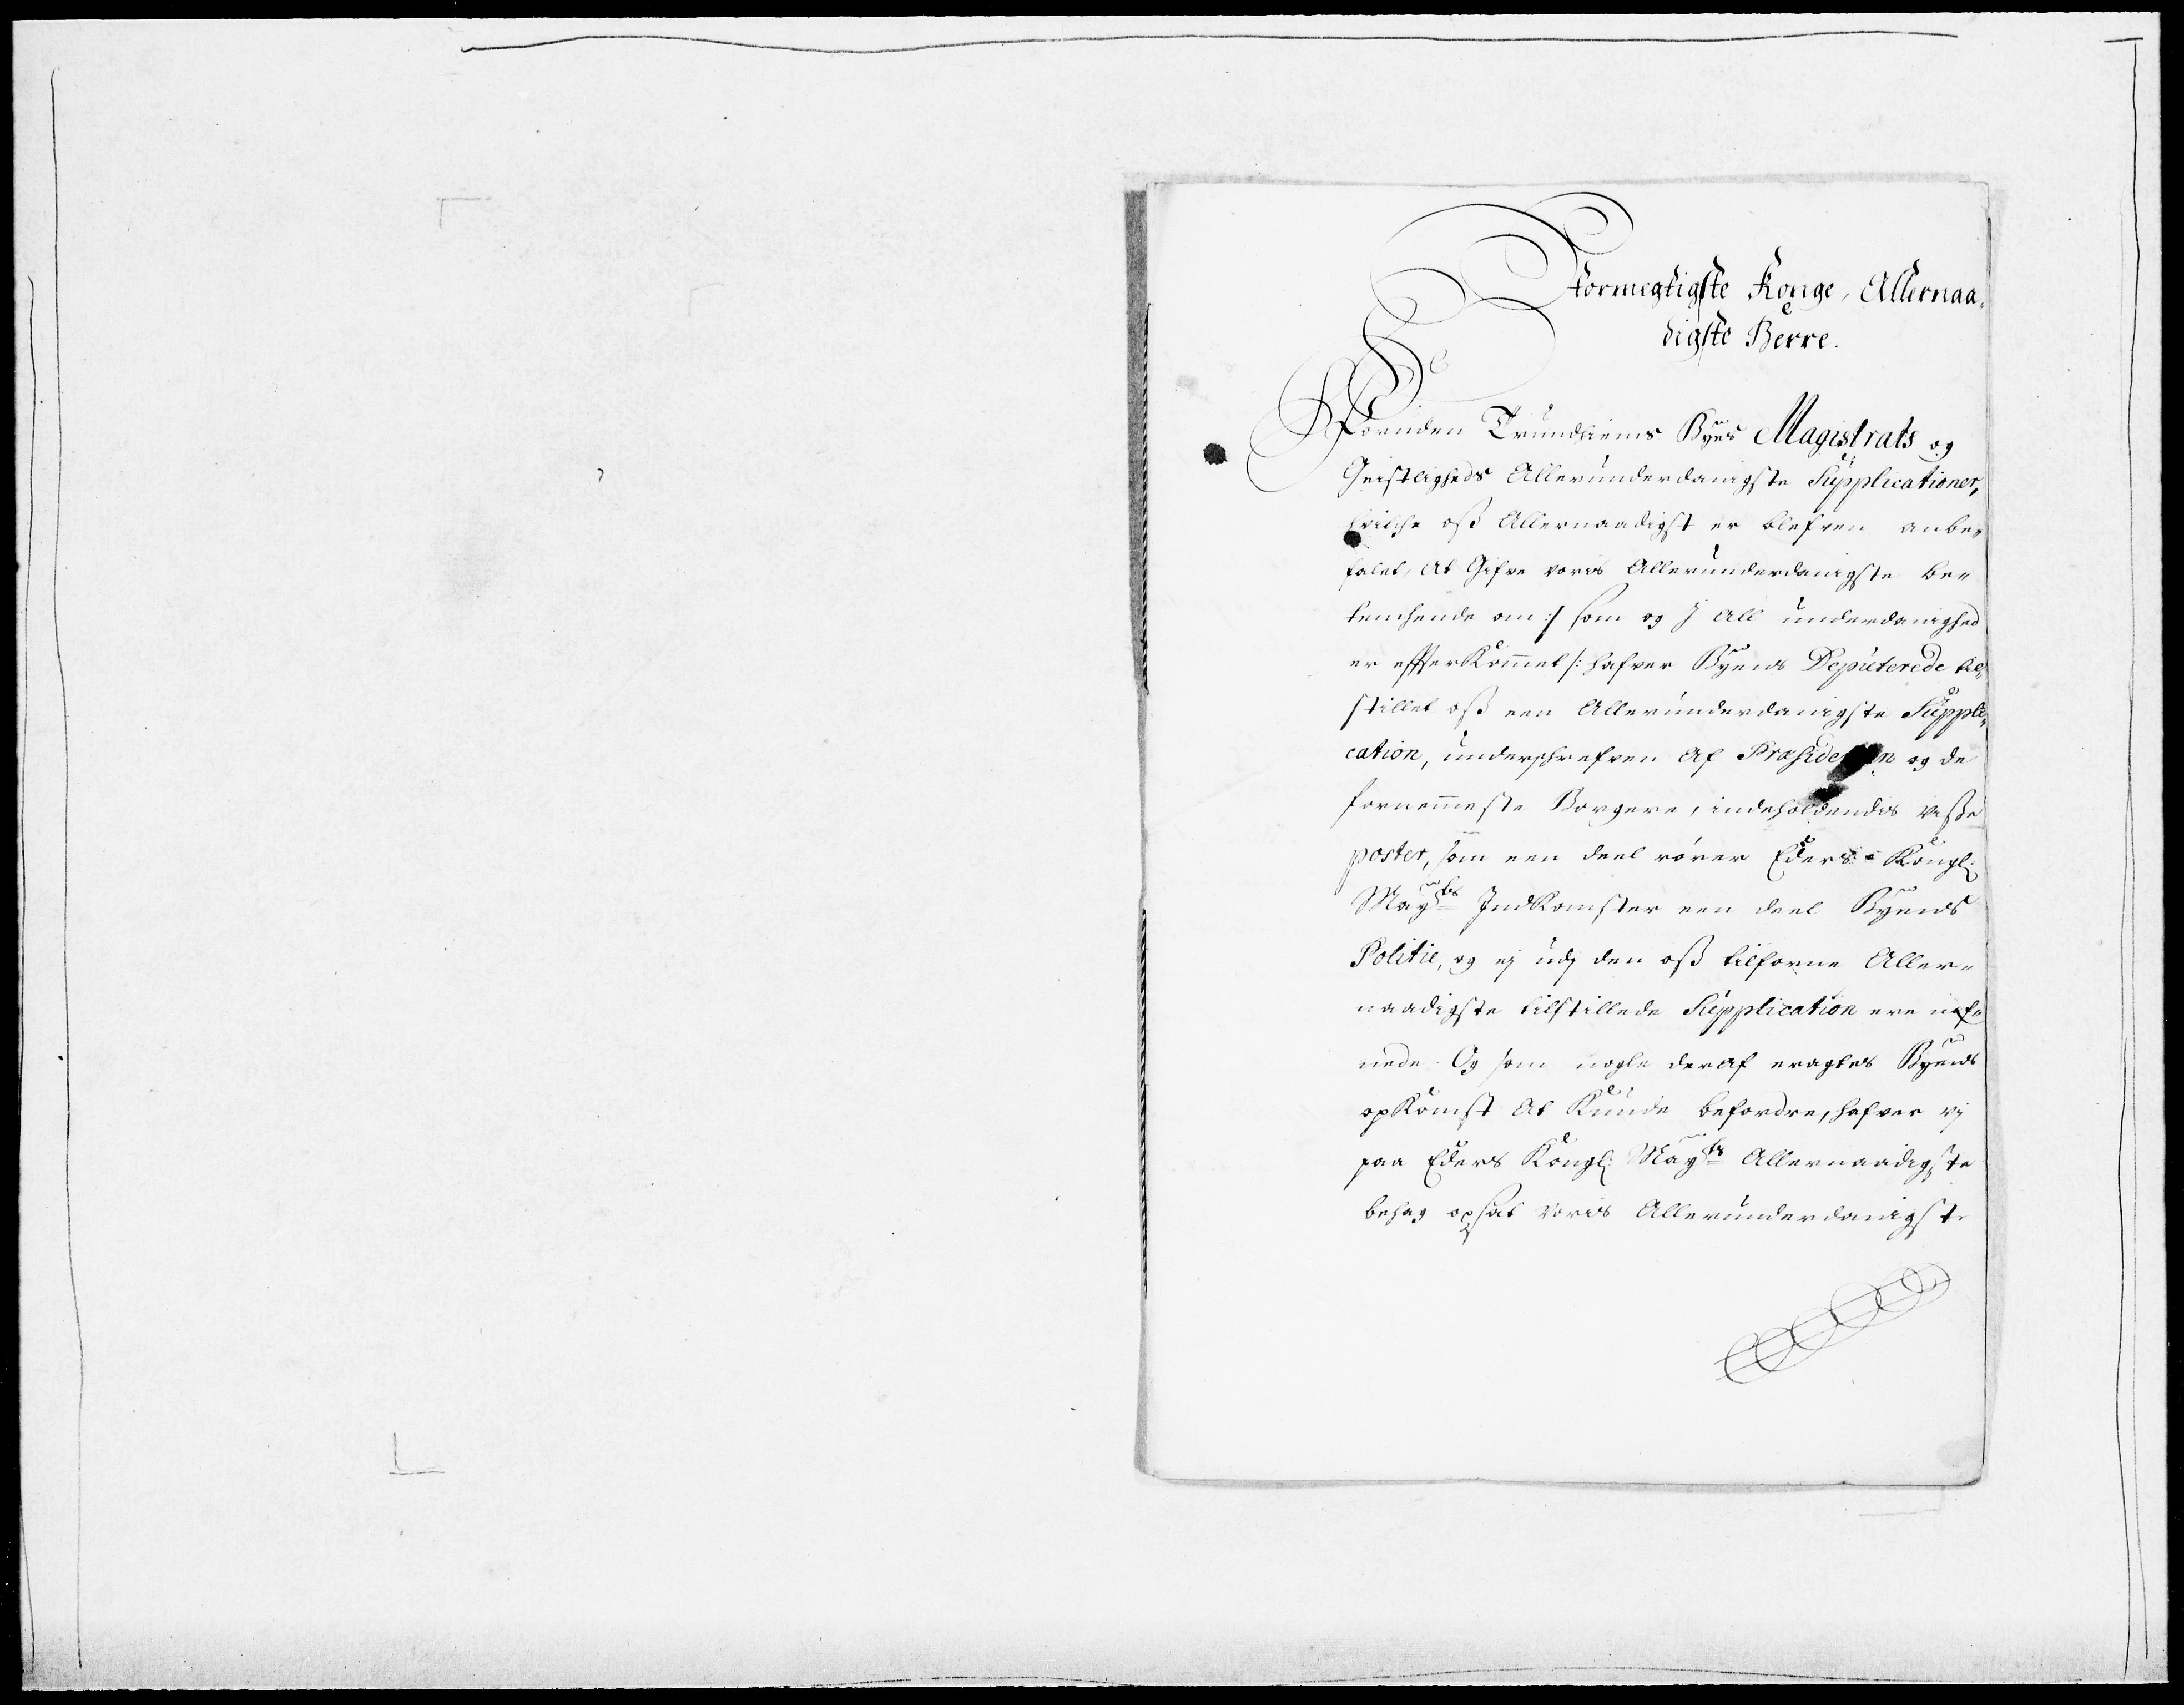 Stormegtigste Konge, Allernaa-
digste Herre.
Foruden Trundhiems Byes Magistrats og
Geistligheds Allerunderdanigste Supplicationer,
hvilche oss Allernaadigst er blefven anbe-
falet, at Gifve voris Allerunderdanigste be-
tenchende om :/ som og J All underdanighed
er efterKommet /: hafver Byens Deputerede til-
stillet oss een Allerunderdanigste Suppli-
cation, underschrefven Af Præsidenten og de
fornemmeste Borgere, indeholdendes visse
poster, som een deel rörer Eders Kongl:
Mayts IndKomster een deel Byends
Politie, og ej udj den oss tilforne Aller-
naadigste tilstillede Supplication ere nef-
nede. Og som nogle deraf eragtes Byends
opKomst At Kunde befordre, hafver vj
paa Eders Kongl: Mayts Allernaadigste
behag opsat voris Allerunderdanigste